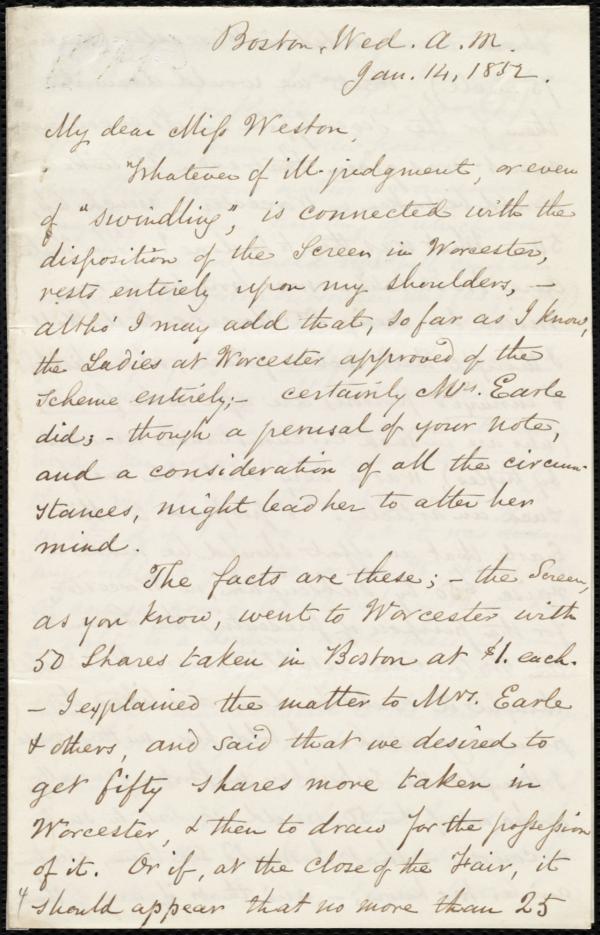 Boston, Wed. A.M.
Jan. 14, 1852.
My dear Miss Weston,
Whatever of ill-judgment, or even
of "swindling", is connected with the
disposition of the Screen in Worcester,
rests entirely upon my shoulders, —
altho' I may add that, so far as I know,
the Ladies at Worcester approved of the
Scheme entirely; - certainly Mrs. Earle
did; - though a perusal of your note,
and a consideration of all the circum-
stances, might lead her to alter her
mind.
The facts are these; - the Screen,
as you know, went to Worcester with
50 Shares taken in Boston at $1. each.
- I explained the matter to Mrs. Earle
& others, and said that we desired to
get fifty shares more taken in
Worcester, & then to draw for the possession
of it. Or if, at the close of the Fair, it
should appear that no more than 25